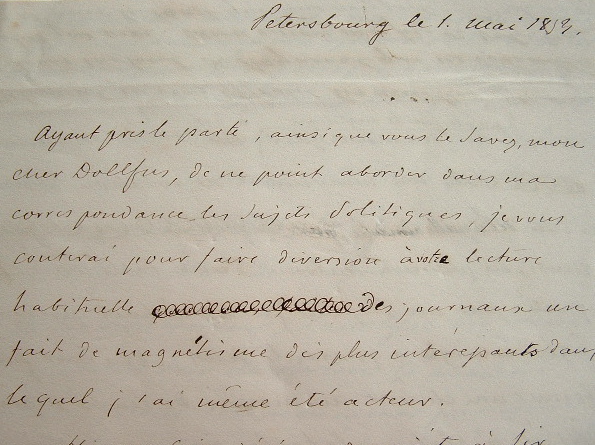 Petersbourg le 1. mai 1853.
Ayant pris le parti, ainsi que vous le savez, mon
cher Dollfus, de ne point aborder dans ma
correspondance les sujets politiques, je vous
conterai pour faire diversion à votre lecture
habituelle des journaux un
fait de magnétisme des plus intérépants dans
lequel j'ai même été acteur.